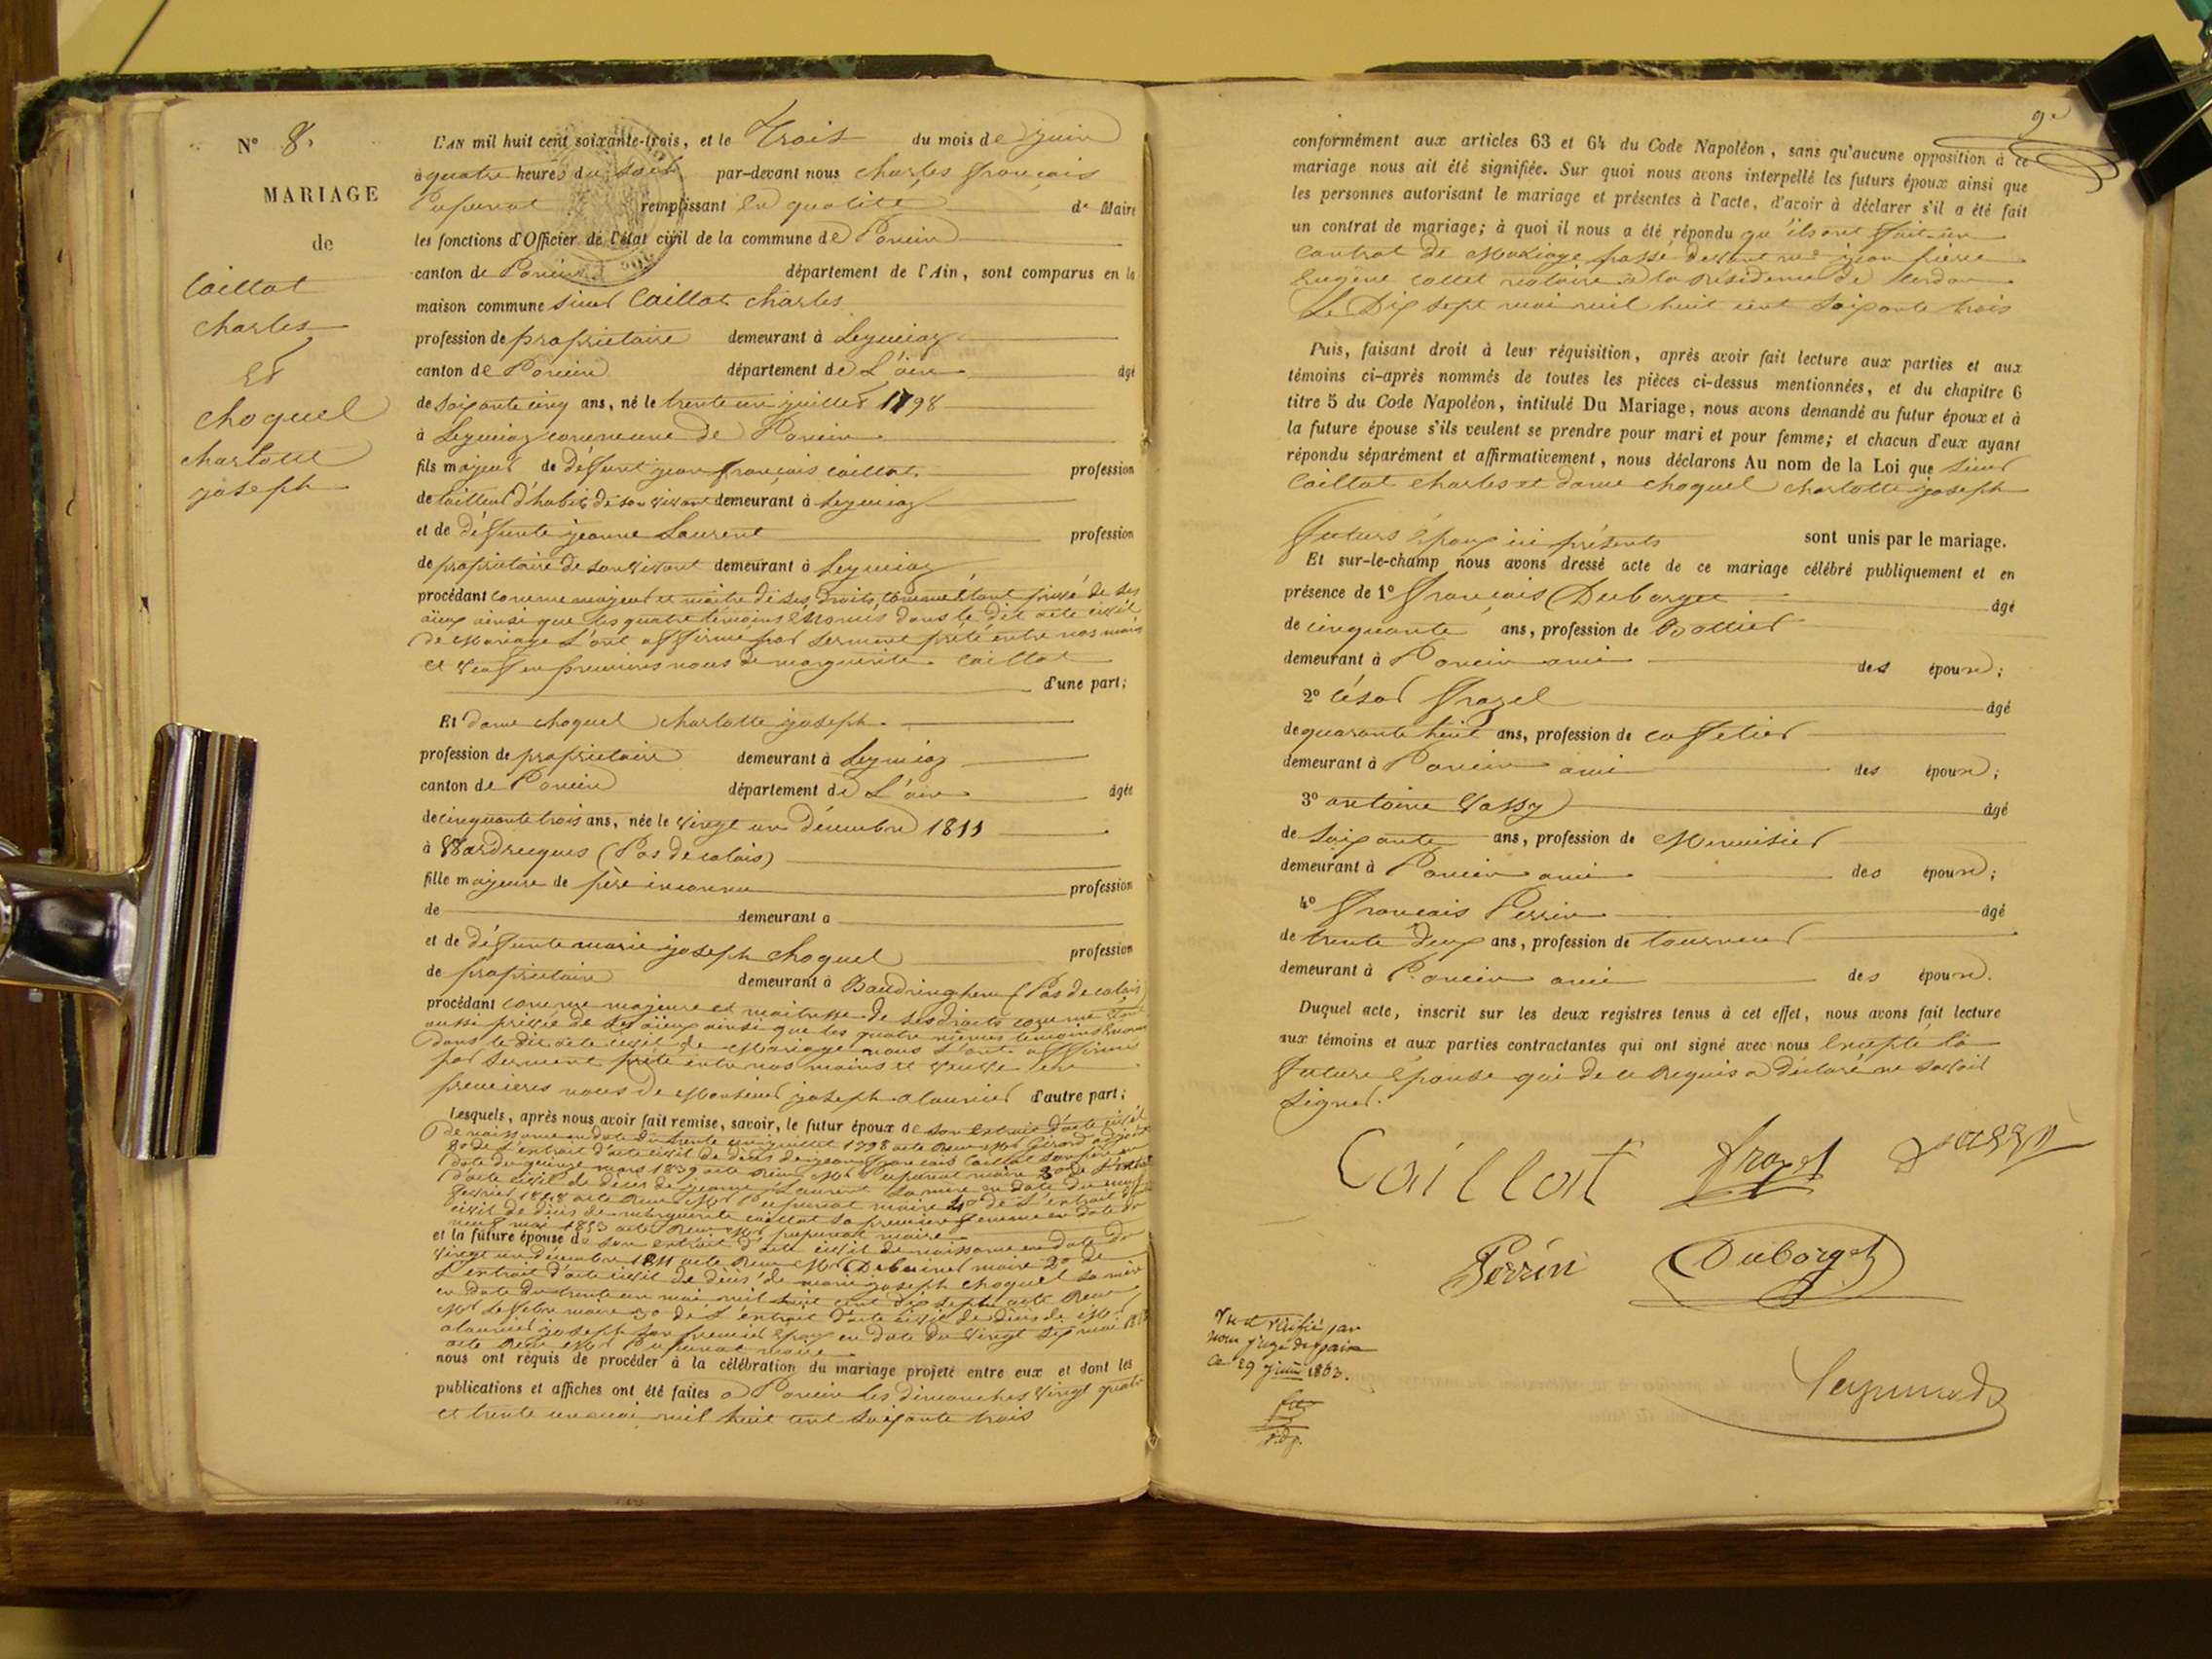 N° 8.
MARIAGE
de
Caillat
charles
Et
choquel
charlotte
joseph
L'AN mil huit cent soixante-trois, et le Trois du mois de juin
à quatre heures du soir par-devant nous charles françois
Pupunat remplissant En qualité de Maire
les fonctions d'Officier de l'état civil de la commune de Poncin
canton de Poncin département de l'Ain, sont comparus en la
maison commune sieur Caillat charles
profession de propriétaire demeurant à Leymiaz
canton de Poncin département de L'ain âgé
de soixante cinq ans, né le trente un juillet 1798
à Leymiaz commune de Poncin
fils majeur de défunt jean françois caillat profession
de tailleur d'habits de son vivant demeurant à Leymiaz
et de défunte jeanne Laurent profession
de propriétaire de son vivant demeurant à Leymiaz
procédant comme majeur et maître de ses droits, comme étant privé de ses
aïeux ainsi que les quatre témoins Enoncés dans le dit acte civil
de Mariage L'ont affirmé par serment prêté entre nos mains
et veuf en premières noces de marguerite caillat
d'une part;
Et dame choquel charlotte joseph
profession de propriétaire demeurant à Leymiaz
canton de Poncin département de L'ain âgée
de cinquante trois ans, née le vingt un décembre 1811
à Wardrecques (Pas de calais)
fille majeure de père inconnu profession
de demeurant a
et de défunte marie joseph choquel profession
de propriétaire demeurant à Baudringhem (Pas de calais)
procédant comme majeure et maitresse de ses droits comme étant
aussi privée de ses aïeux ainsi que les quatre mêmes témoins Enoncés
dans le dit acte civil de Mariage nous L'ont affirmé
par serment prêté entre nos mains et veuve en
premières noces de Monsieur joseph alaunier d'autre part;
Lesquels, après nous avoir fait remise, savoir, le futur époux de son extrait d'acte civil
de naissance en date du trente un juillet 1798 acte Reçu Mr Girord adjoint
2° de L'extrait d'acte civil de décès de jean françois Caillat son père en
date du quinze mars 1839 acte Reçu Mr Pupunat maire 3° de L'extrait
d'acte civil de décès de jeanne Laurent sa mère en date du neuf
février acte Reçu Mr Pupunat maire 4° de L'extrait d'acte
civil de décès de marguerite caillat sa première femme en date du
neuf mai 1853 acte Reçu Mr pupunat maire
et la future épouse de son extrait d'acte civil de naissance en date du
vingt un décembre 1811 acte Reçu Mr maire 2° de
L'extrait d'acte civil de décès de marie joseph choquel sa mère
en date du trente un mai mil huit cent dix sept acte Reçu
Mr Lefebre maire 3° de L'extrait d'acte civil de décès de Mr
alaunier joseph son premier époux en date du vingt six mai
acte Reçu Mr Pupunat maire
nous ont requis de procéder à la célébration du mariage projeté entre eux et dont les
publications et affiches ont été faites a Poncin les dimanches vingt quatre
et trente un mai mil huit cent soixante trois
9e
conformément aux articles 63 et 64 du Code Napoléon, sans qu'aucune opposition à ce
mariage nous ait été signifiée. Sur quoi nous avons interpellé les futurs époux ainsi que
les personnes autorisant le mariage et présentes à l'acte, d'avoir à déclarer s'il a été fait
un contrat de mariage; à quoi il nous a été répondu qu'ils ont fait un
Contrat de Mariage passé devant me jean pierre
Eugène collet notaire à la Résidence de Cerdon
Le Dix sept mai mil huit cent soixante trois
Puis, faisant droit à leur réquisition, après avoir fait lecture aux parties et aux
témoins ci-après nommés de toutes les pièces ci-dessus mentionnées, et du chapitre 6
titre 5 du Code Napoléon, intitulé Du Mariage, nous avons demandé au futur époux et à
la future épouse s'ils veulent se prendre pour mari et pour femme; et chacun d'eux ayant
répondu séparément et affirmativement, nous déclarons Au nom de la Loi que sieur
Caillat charles et dame choquel charlotte joseph
futurs époux ici présents sont unis par le mariage.
Et sur-le-champ nous avons dressé acte de ce mariage célébré publiquement et en
présence de 1° François Duborget âgé
de cinquante ans, profession de Bottier
demeurant à Poncin ami des époux;
2° César Frazel âgé
de quarante huit ans, profession de caffetier
demeurant à Poncin ami des époux;
3° antoine Vassy âgé
de soixante ans, profession de Menuisier
demeurant à Poncin ami des époux;
4° François Perrin âgé
de trente deux ans, profession de tourneur
demeurant à Poncin ami des époux.
Duquel acte, inscrit sur les deux registres tenus à cet effet, nous avons fait lecture
aux témoins et aux parties contractantes qui ont signé avec nous Excepté la
future épouse qui de ce Requis a déclaré ne savoir
signer.
Caillat Frazel Vassy
Perrin Duborget
Vu et vérifié par
nous juge de paix
Ce 29 juin 1863.
j.d.p.